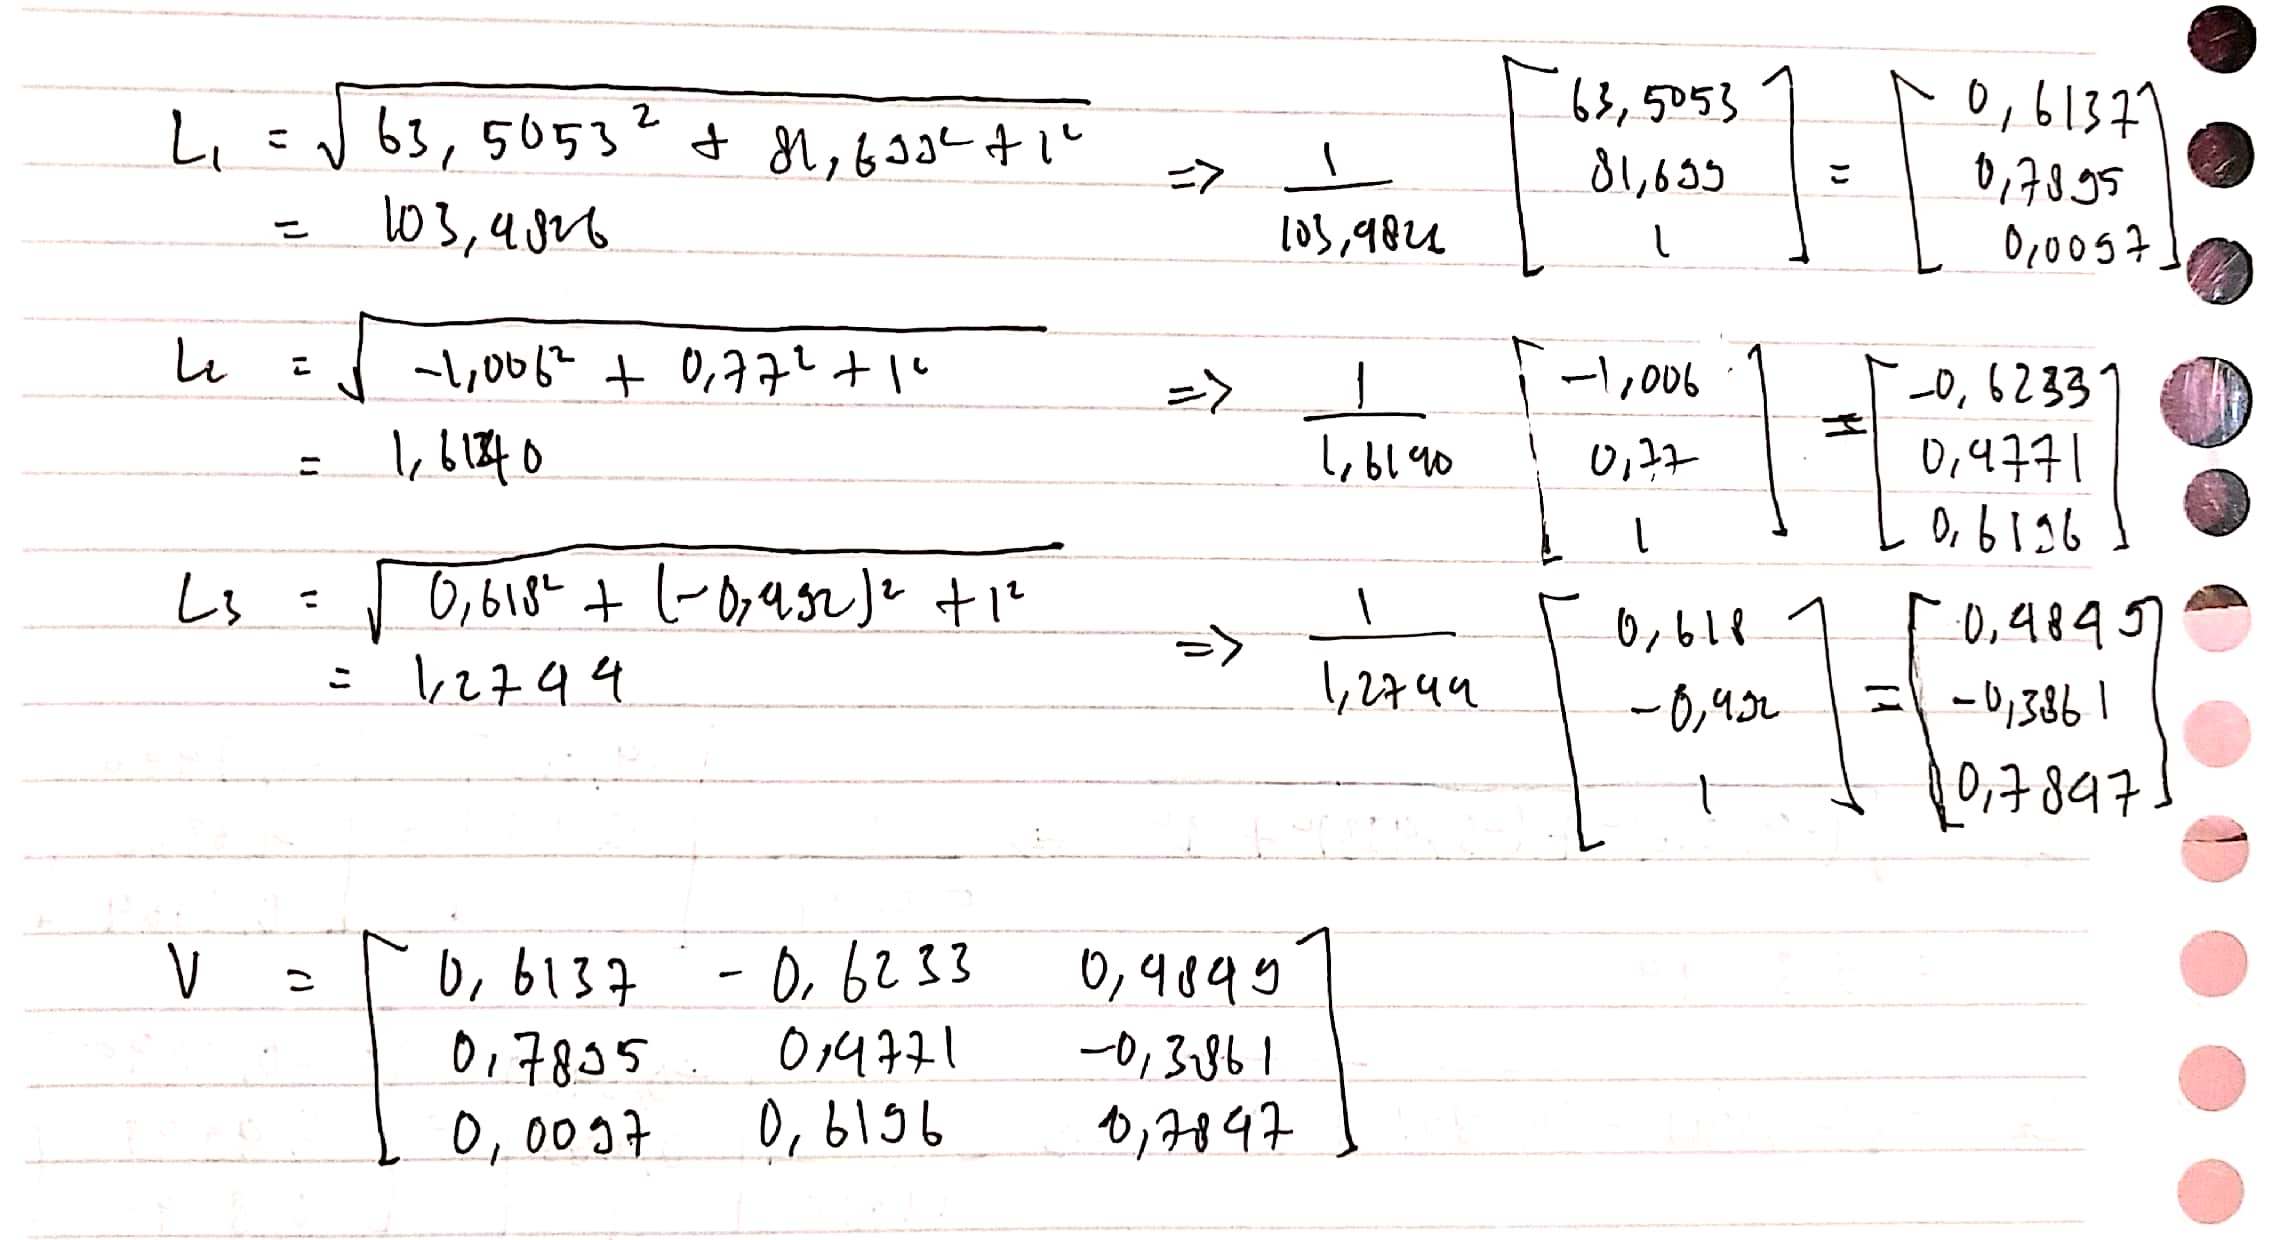 L₁ = √(63,5053² + 81,699² + 1²) => 1/103,4826 [63,5053 81,699 1] = [0,6137 0,7895 0,0097]
= 103,4826
L₂ = √(-1,006² + 0,77² + 1²) => 1/1,6140 [-1,006 0,77 1] = [-0,6233 0,4771 0,6196]
= 1,6140
L₃ = √(0,618² + (-0,492)² + 1²) => 1/1,2744 [0,618 -0,492 1] = [0,4849 -0,3861 0,7847]
= 1,2744
V = [0,6137 -0,6233 0,4849
0,7895 0,4771 -0,3861
0,0097 0,6196 0,7847]